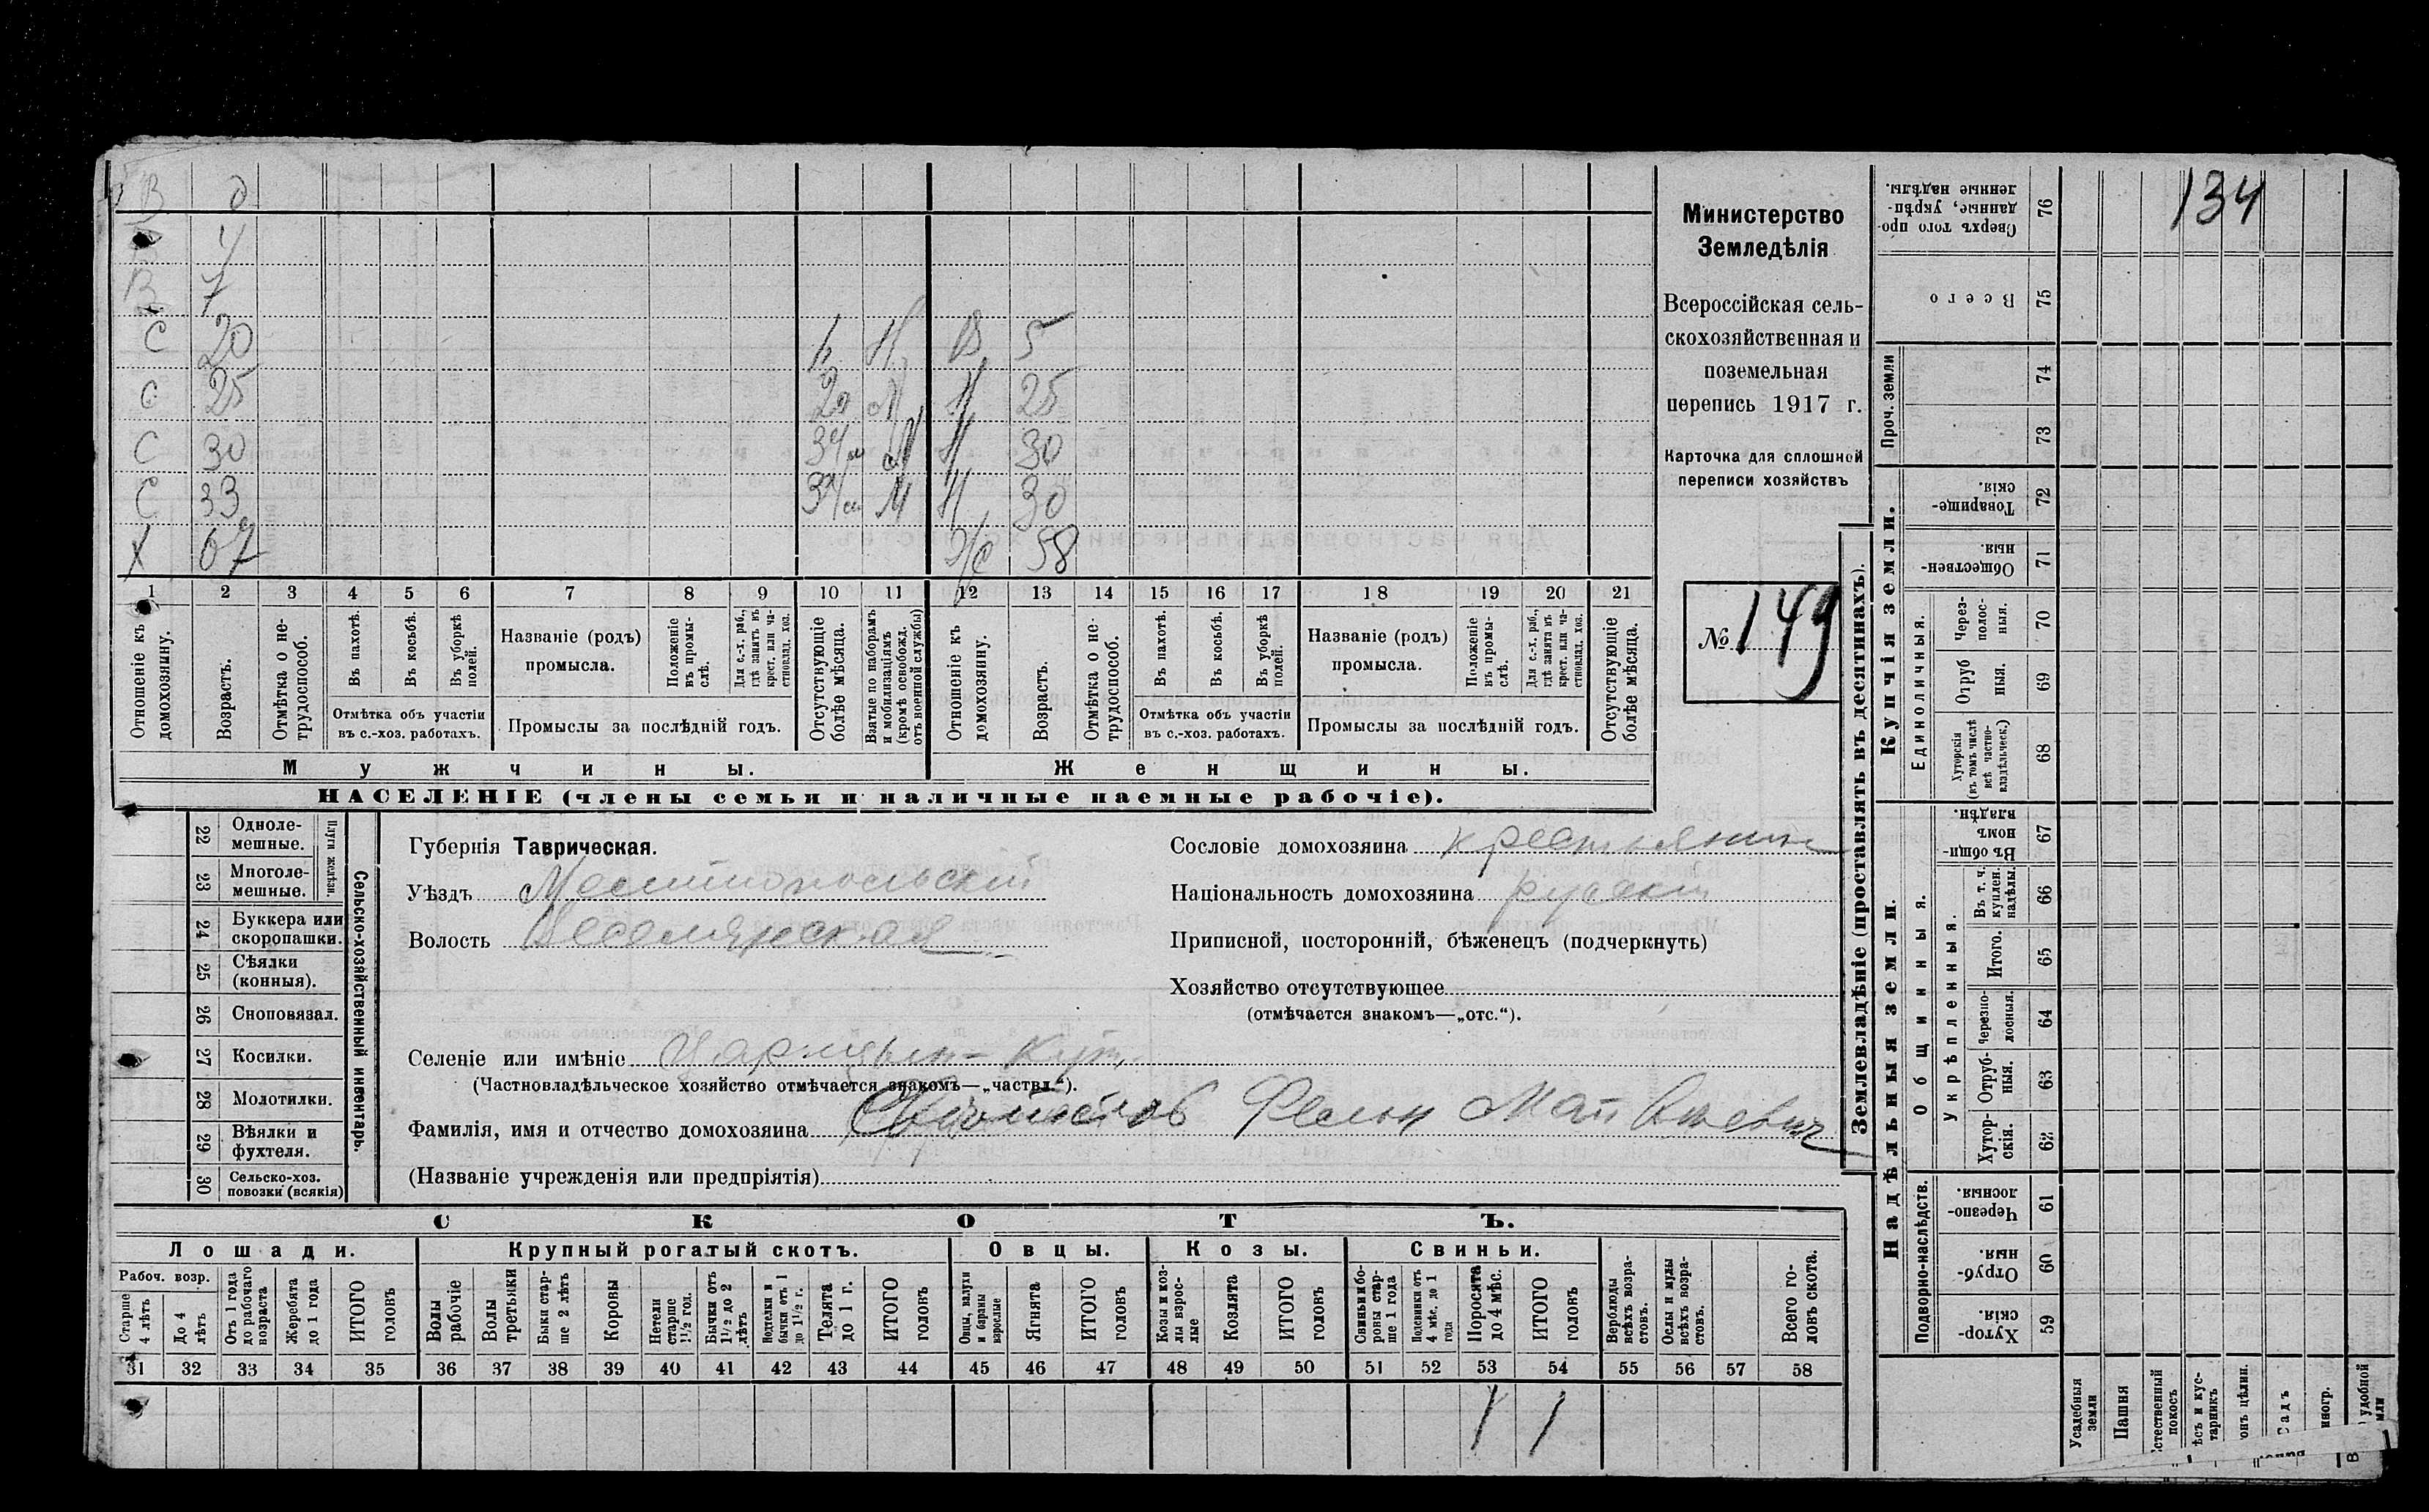 134
В
4
В 7
С 20 В 5
С 25 М Н 25
С 30 М Н 30
С 33 М Н 30
Х 67 Ж 58
1 2 3 4 5 6 7 8 9 10 11 12 13 14 15 16 17 18 19 20 21
Отношеніе къ домохозяину.
Возрастъ.
Отмѣтка о нетрудоспособ.
Въ пахотѣ.
Въ косьбѣ.
Въ уборкѣ полей.
Отмѣтка объ участіи
въ с.-хоз. работахъ.
Названіе (родъ)
промысла.
Положеніе въ промыслѣ.
Для с.-х. раб., гдѣ занятъ въ крест. или частновлад. хоз.
Промыслы за послѣдній годъ.
Отсутствующіе болѣе мѣсяца.
Взятые по наборамъ и мобилизаціямъ (кромѣ освобожд. отъ военной службы)
Отношеніе къ домохозяину.
Возрастъ.
Отмѣтка о нетрудоспособ.
Въ пахотѣ.
Въ косьбѣ.
Въ уборкѣ полей.
Отмѣтка объ участіи
въ с.-хоз. работахъ.
Названіе (родъ)
промысла.
Положеніе въ промыслѣ.
Для с.-х. раб., гдѣ занята въ крест. или частновлад. хоз.
Промыслы за послѣдній годъ.
Отсутствующіе болѣе мѣсяца.
Мужчины.
Женщины.
НАСЕЛЕНІЕ (члены семьи и наличные наемные рабочіе).
Министерство
Земледѣлія
Всероссійская сель-
скохозяйственная и
поземельная
перепись 1917 г.
Карточка для сплошной
переписи хозяйствъ
№ 149
Сельско-хозяйственный инвентарь.
Плуги желѣзн.
22 Одноле-
мешные.
23 Многоле-
мешные.
24 Буккера или
скоропашки.
25 Сѣялки
(конныя).
26 Сноповязал.
27 Косилки.
28 Молотилки.
29 Вѣялки и
фухтеля.
30 Сельско-хоз.
повозки (всякія)
Губернія Таврическая.
Уѣздъ Мелитопольскій
Волость Веселярская
Селеніе или имѣніе Царицын-Кут
(Частновладѣльческое хозяйство отмѣчается знакомъ—„частвл.“).
Фамилія, имя и отчество домохозяина Матвѣевич
(Названіе учрежденія или предпріятія)
Сословіе домохозяина крестьянин
Національность домохозяина
Приписной, посторонній, бѣженецъ (подчеркнуть)
Хозяйство отсутствующее
(отмѣчается знакомъ—„отс.“).
СКОТЪ.
Лошади. Крупный рогатый скотъ. Овцы. Козы. Свиньи.
Рабоч. возр.
Старше 4 лѣтъ
До 4 лѣтъ
Отъ 1 года до рабочаго возраста
Жеребята до 1 года
ИТОГО головъ
Волы рабочіе
Волы третьяки
Быки старше 2 лѣтъ
Коровы
Нетели старше 1½ год.
Бычки отъ 1½ до 2 лѣтъ
Подтелки и бычки отъ 1 до 1½ г.
Телята до 1 г.
ИТОГО головъ
Овцы, валухи и бараны взрослые
Ягнята
ИТОГО головъ
Козы и козлы взрослые
Козлята
ИТОГО головъ
Свиньи и боровы старше 1 года
Подсвинки отъ 4 мѣс. до 1 года
Поросята до 4 мѣс.
ИТОГО головъ
Верблюды всѣхъ возрастовъ.
Ослы и мулы всѣхъ возрастовъ.
Всего головъ скота.
31 32 33 34 35 36 37 38 39 40 41 42 43 44 45 46 47 48 49 50 51 52 53 54 55 56 57 58
1 1
Землевладѣніе (проставлять въ десятинахъ).
Надѣльныя земли.
Купчія земли.
Проч. земли
Сверхъ того проданные, укрѣпленные надѣлы. 76
Всего 75
74
73
Товарищескія. 72
Общественныя. 71
Единоличныя.
Черезполосныя. 70
Отрубныя. 69
Хуторскія (въ томъ числѣ всѣ частновладѣльческ.) 68
Общинныя.
Въ общинномъ владѣн. 67
Укрѣпленныя.
Въ т. ч. куплен. надѣлы. 66
Итого. 65
Черезполосныя. 64
Отрубныя. 63
Хуторскія. 62
Подворно-наслѣдств.
Черезполосныя. 61
Отрубныя. 60
Хуторскія. 59
Усадебныя земли
Пашня
Садъ